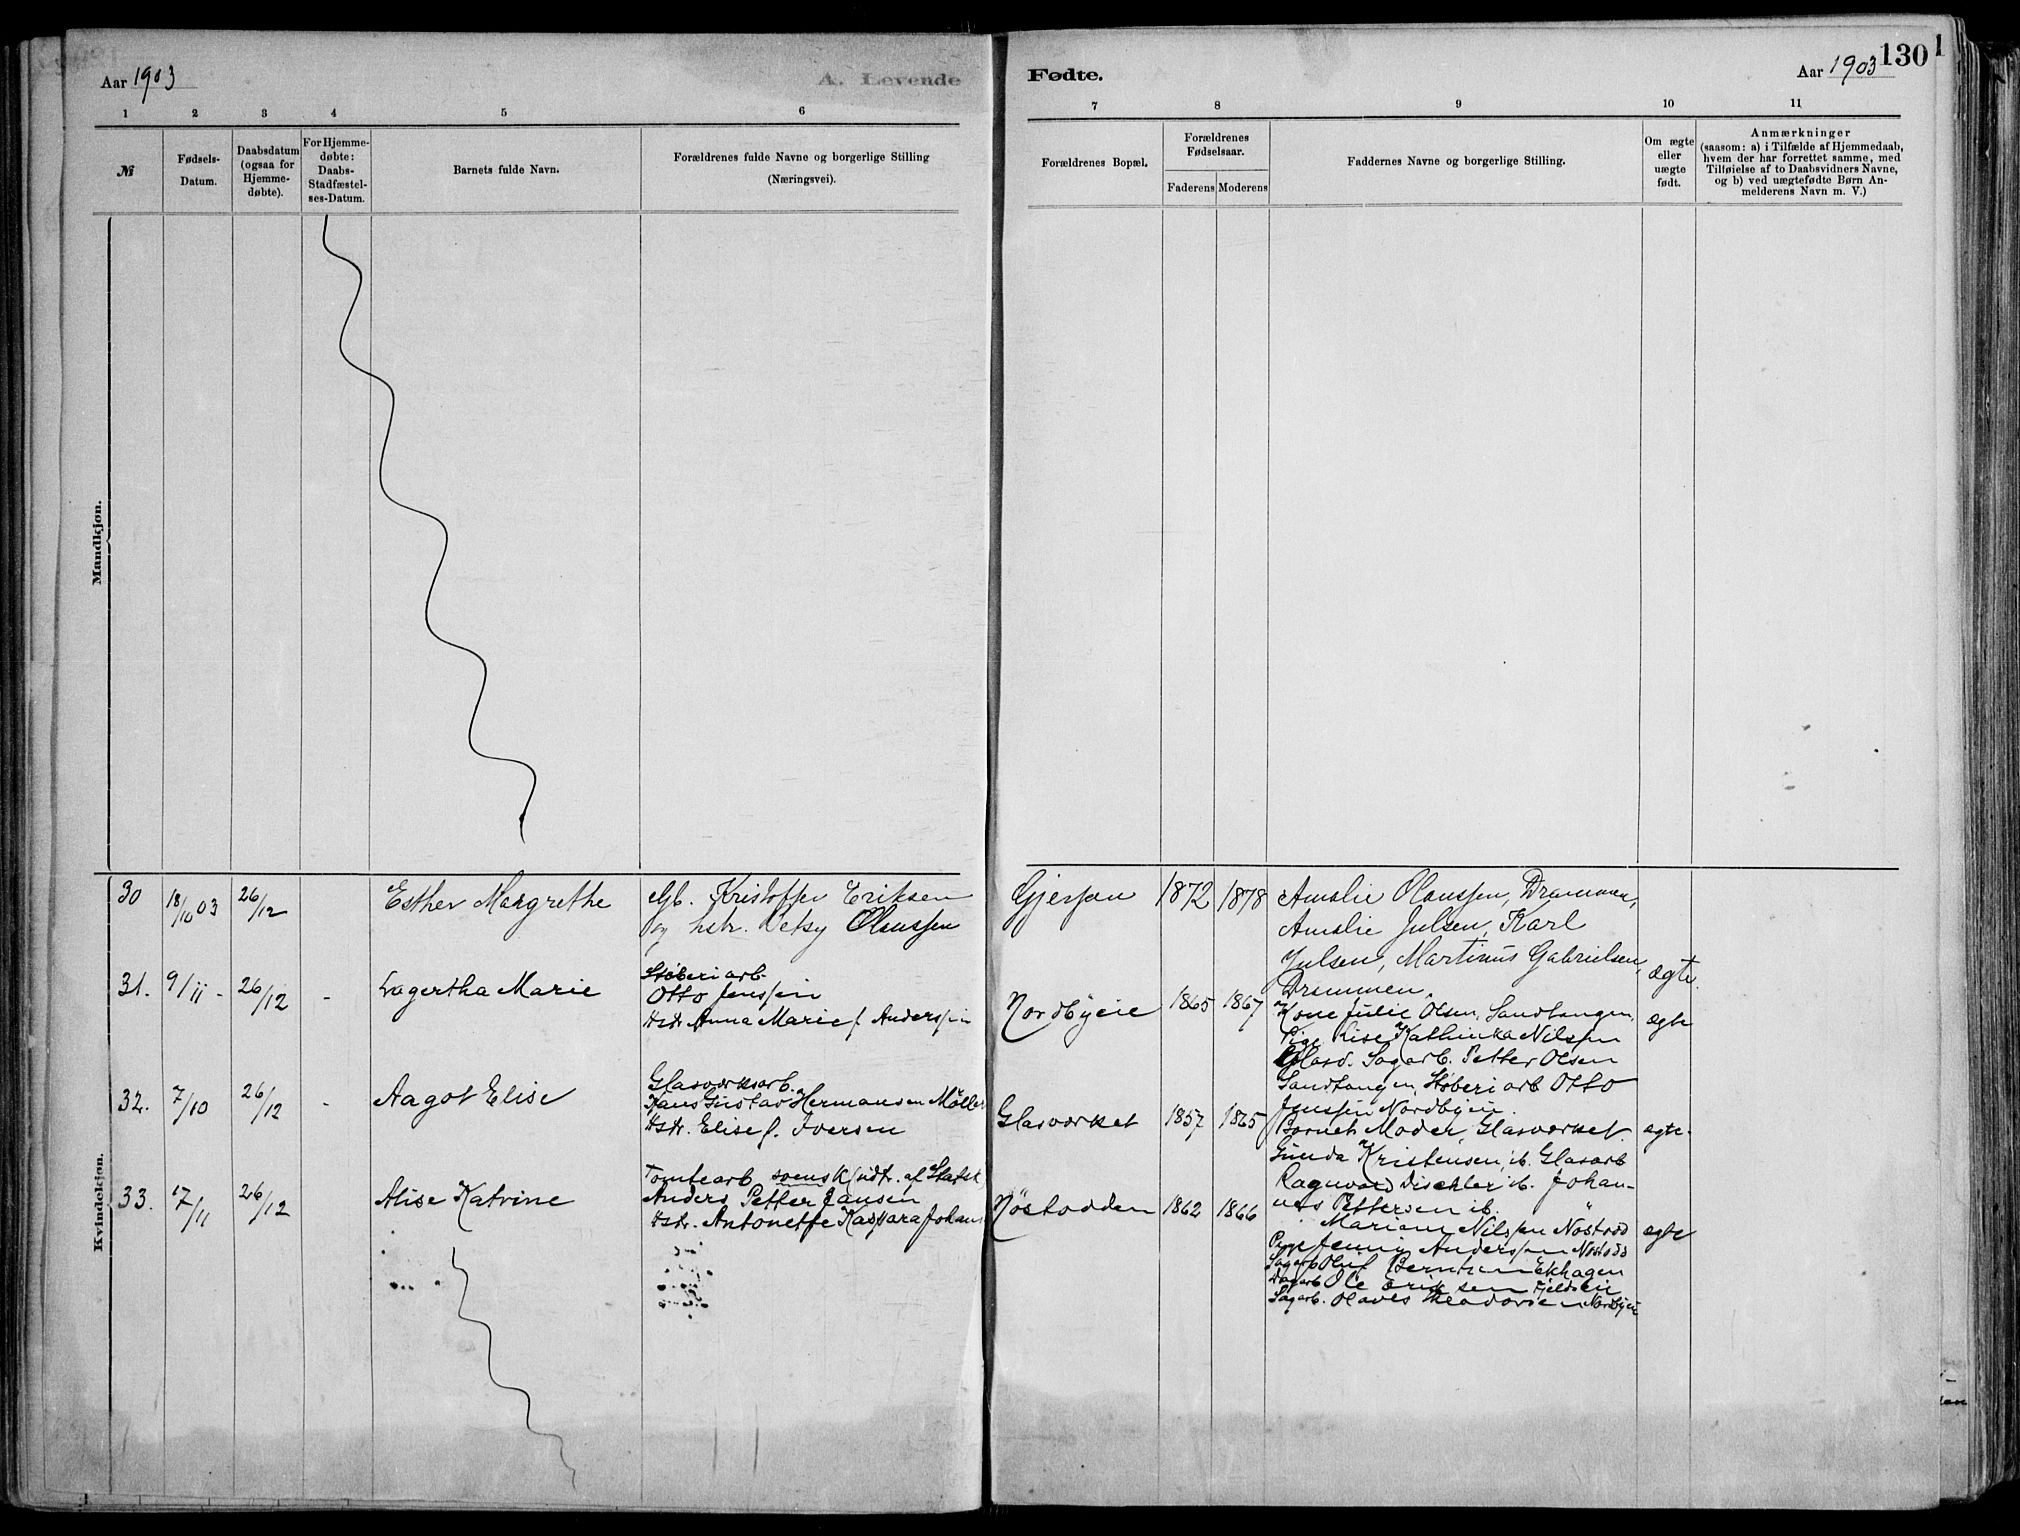 Aar 1903
A. Levende
Fødte.
Aar 1903
130
1
1 2 3 4 5 6 7 8 9 10 11
№
Fødsels-
Datum.
Daabsdatum
(ogsaa for
Hjemme-
døbte).
For Hjemme-
døbte:
Daabs-
Stadfæstel-
ses-Datum.
Barnets fulde Navn.
Forældrenes fulde Navne og borgerlige Stilling
(Næringsvei).
Forældrenes Bopæl.
Forældrenes
Fødselsaar.
Faderens Moderens
Faddernes Navne og borgerlige Stilling.
Om ægte
eller
uægte
født.
Anmærkninger
(saasom: a) i Tilfælde af Hjemmedaab,
hvem der har forrettet samme, med
Tilføielse af to Daabsvidners Navne,
og b) ved uægtefødte Børn An-
melderens Navn m. V.)
Mandkjøn.
Kvindekjøn.
30 18/10 03 26/12 Esther Margrethe
Gb. Kristoffer Eriksen
og hstr. Betsy Olaussen
Gjersøen 1872 1878
Amalie Olaussen, Drammen,
Amalie Julsen, Karl
Julsen, Martinus Gabrielsen,
Drammen.
ægte.
31. 9/11 - 26/12 - Lagertha Marie
Støberiarb.
Otto Jenssen
Hstr Anna Marie f Anderssen
Nordbyeie 1865 1867
Kone Julie Olsen, Sandtangen,
Pige Lise Kathinka Nilssen
Sagarb. Petter Olsen
Sandtangen, Støberiarb Otto
Jenssen Nordbyeie.
ægte
32. 7/10 26/12 - Aagot Elise
Glasværksarb.
Hans Gustav Hermansen Møller
Hstr. Elise f. Iversen
Glasværket 1857 1865
Barnets Moder, Glasværket
Gunda Kristensen, ib. Glasarb
Ragnvald Dischler ib. Johan-
nes Pettersen ib.
ægte.
33. 17/11 26/12 Alise Katrine
Tomtearb svensk udtr. af Statsk
Anders Petter Jansen
Hstr. Antonette Kaspara Johans
Nøstodden 1862 1866
Mariane Nilssen Nøstodd
Pige Jenny Anderssen Nøstodd
Sagarb Oluf Berntsen Ekhagen
Dagarb Ole Eriksen Fjeldseie
Sagarb. Olaves Theodorsen Nordbyeie
ægte